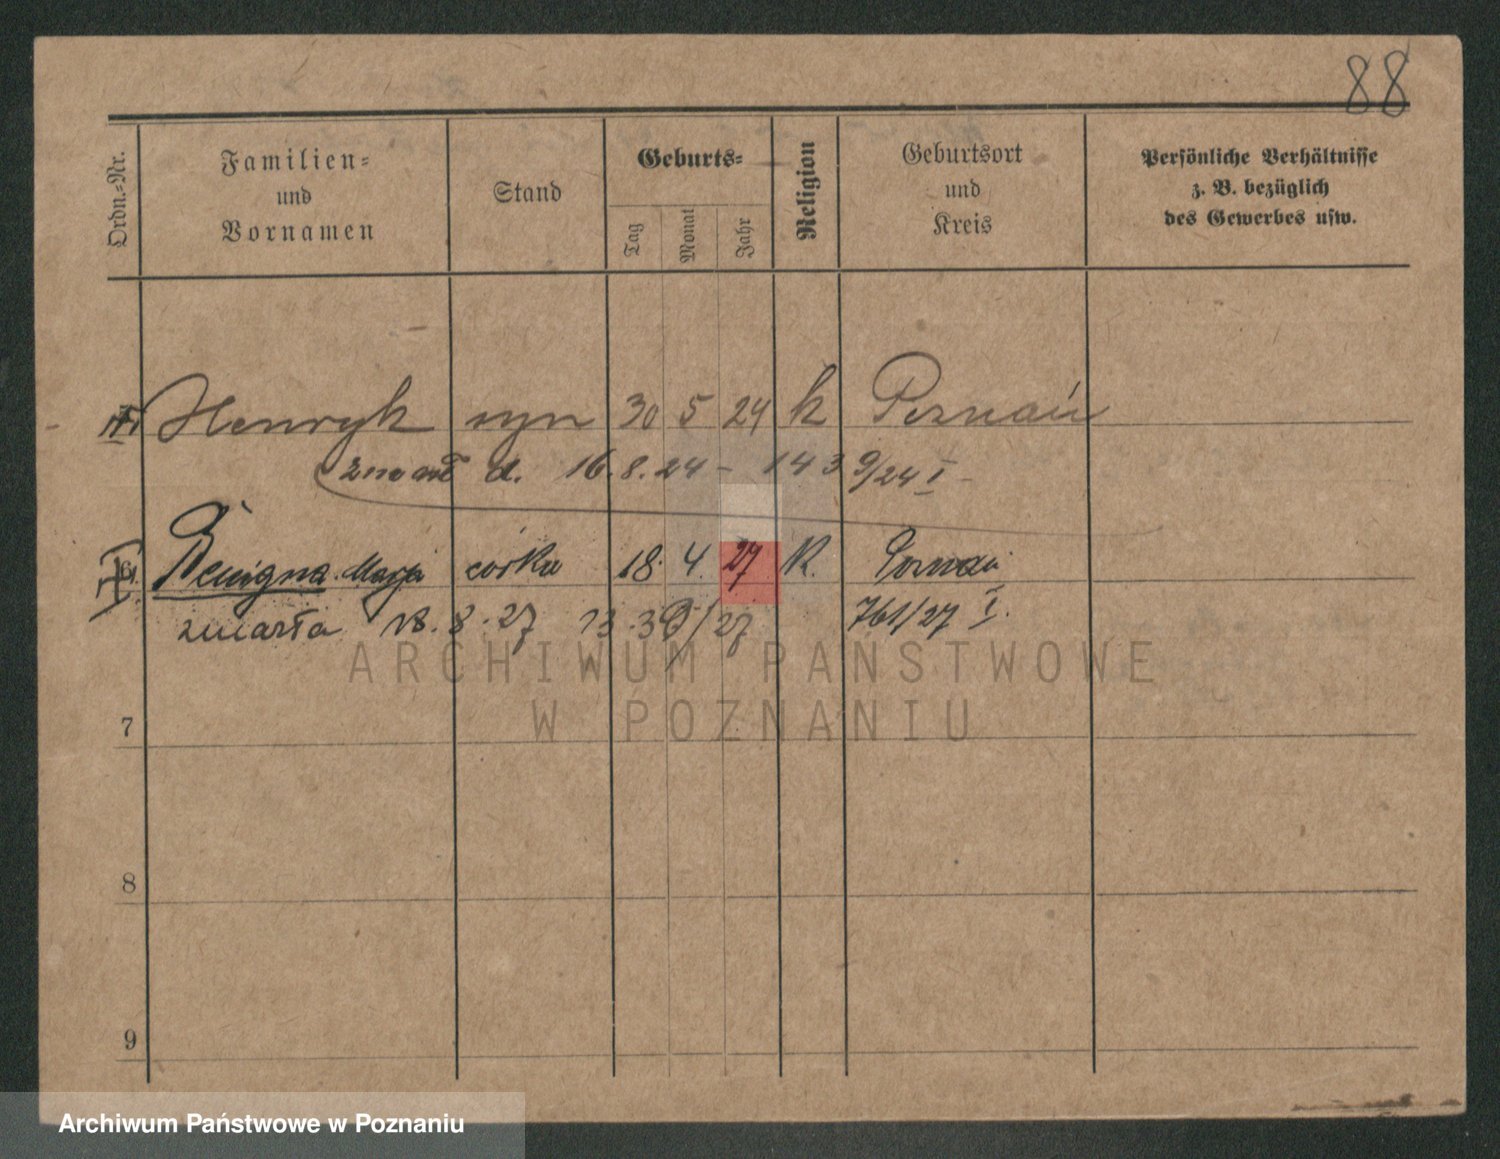 88
Ordn.-Nr.
Familien-
und
Vornamen
Stand
Geburts-
Tag
Monat
Jahr
Religion
Geburtsort
und
Kreis
Persönliche Verhältnisse
z. B. bezüglich
des Gewerbes usw.
Henryk syn 30 5 24 k Poznań
d. 16.8.24 - 1439/24 I
6 Benigna Marja córka 18. 4. 27 K. Poznań
zmarła 18.8.27 /27 761/27 I.
ARCHIWUM PAŃSTWOWE
W POZNANIU
7
8
9
Archiwum Państwowe w Poznaniu